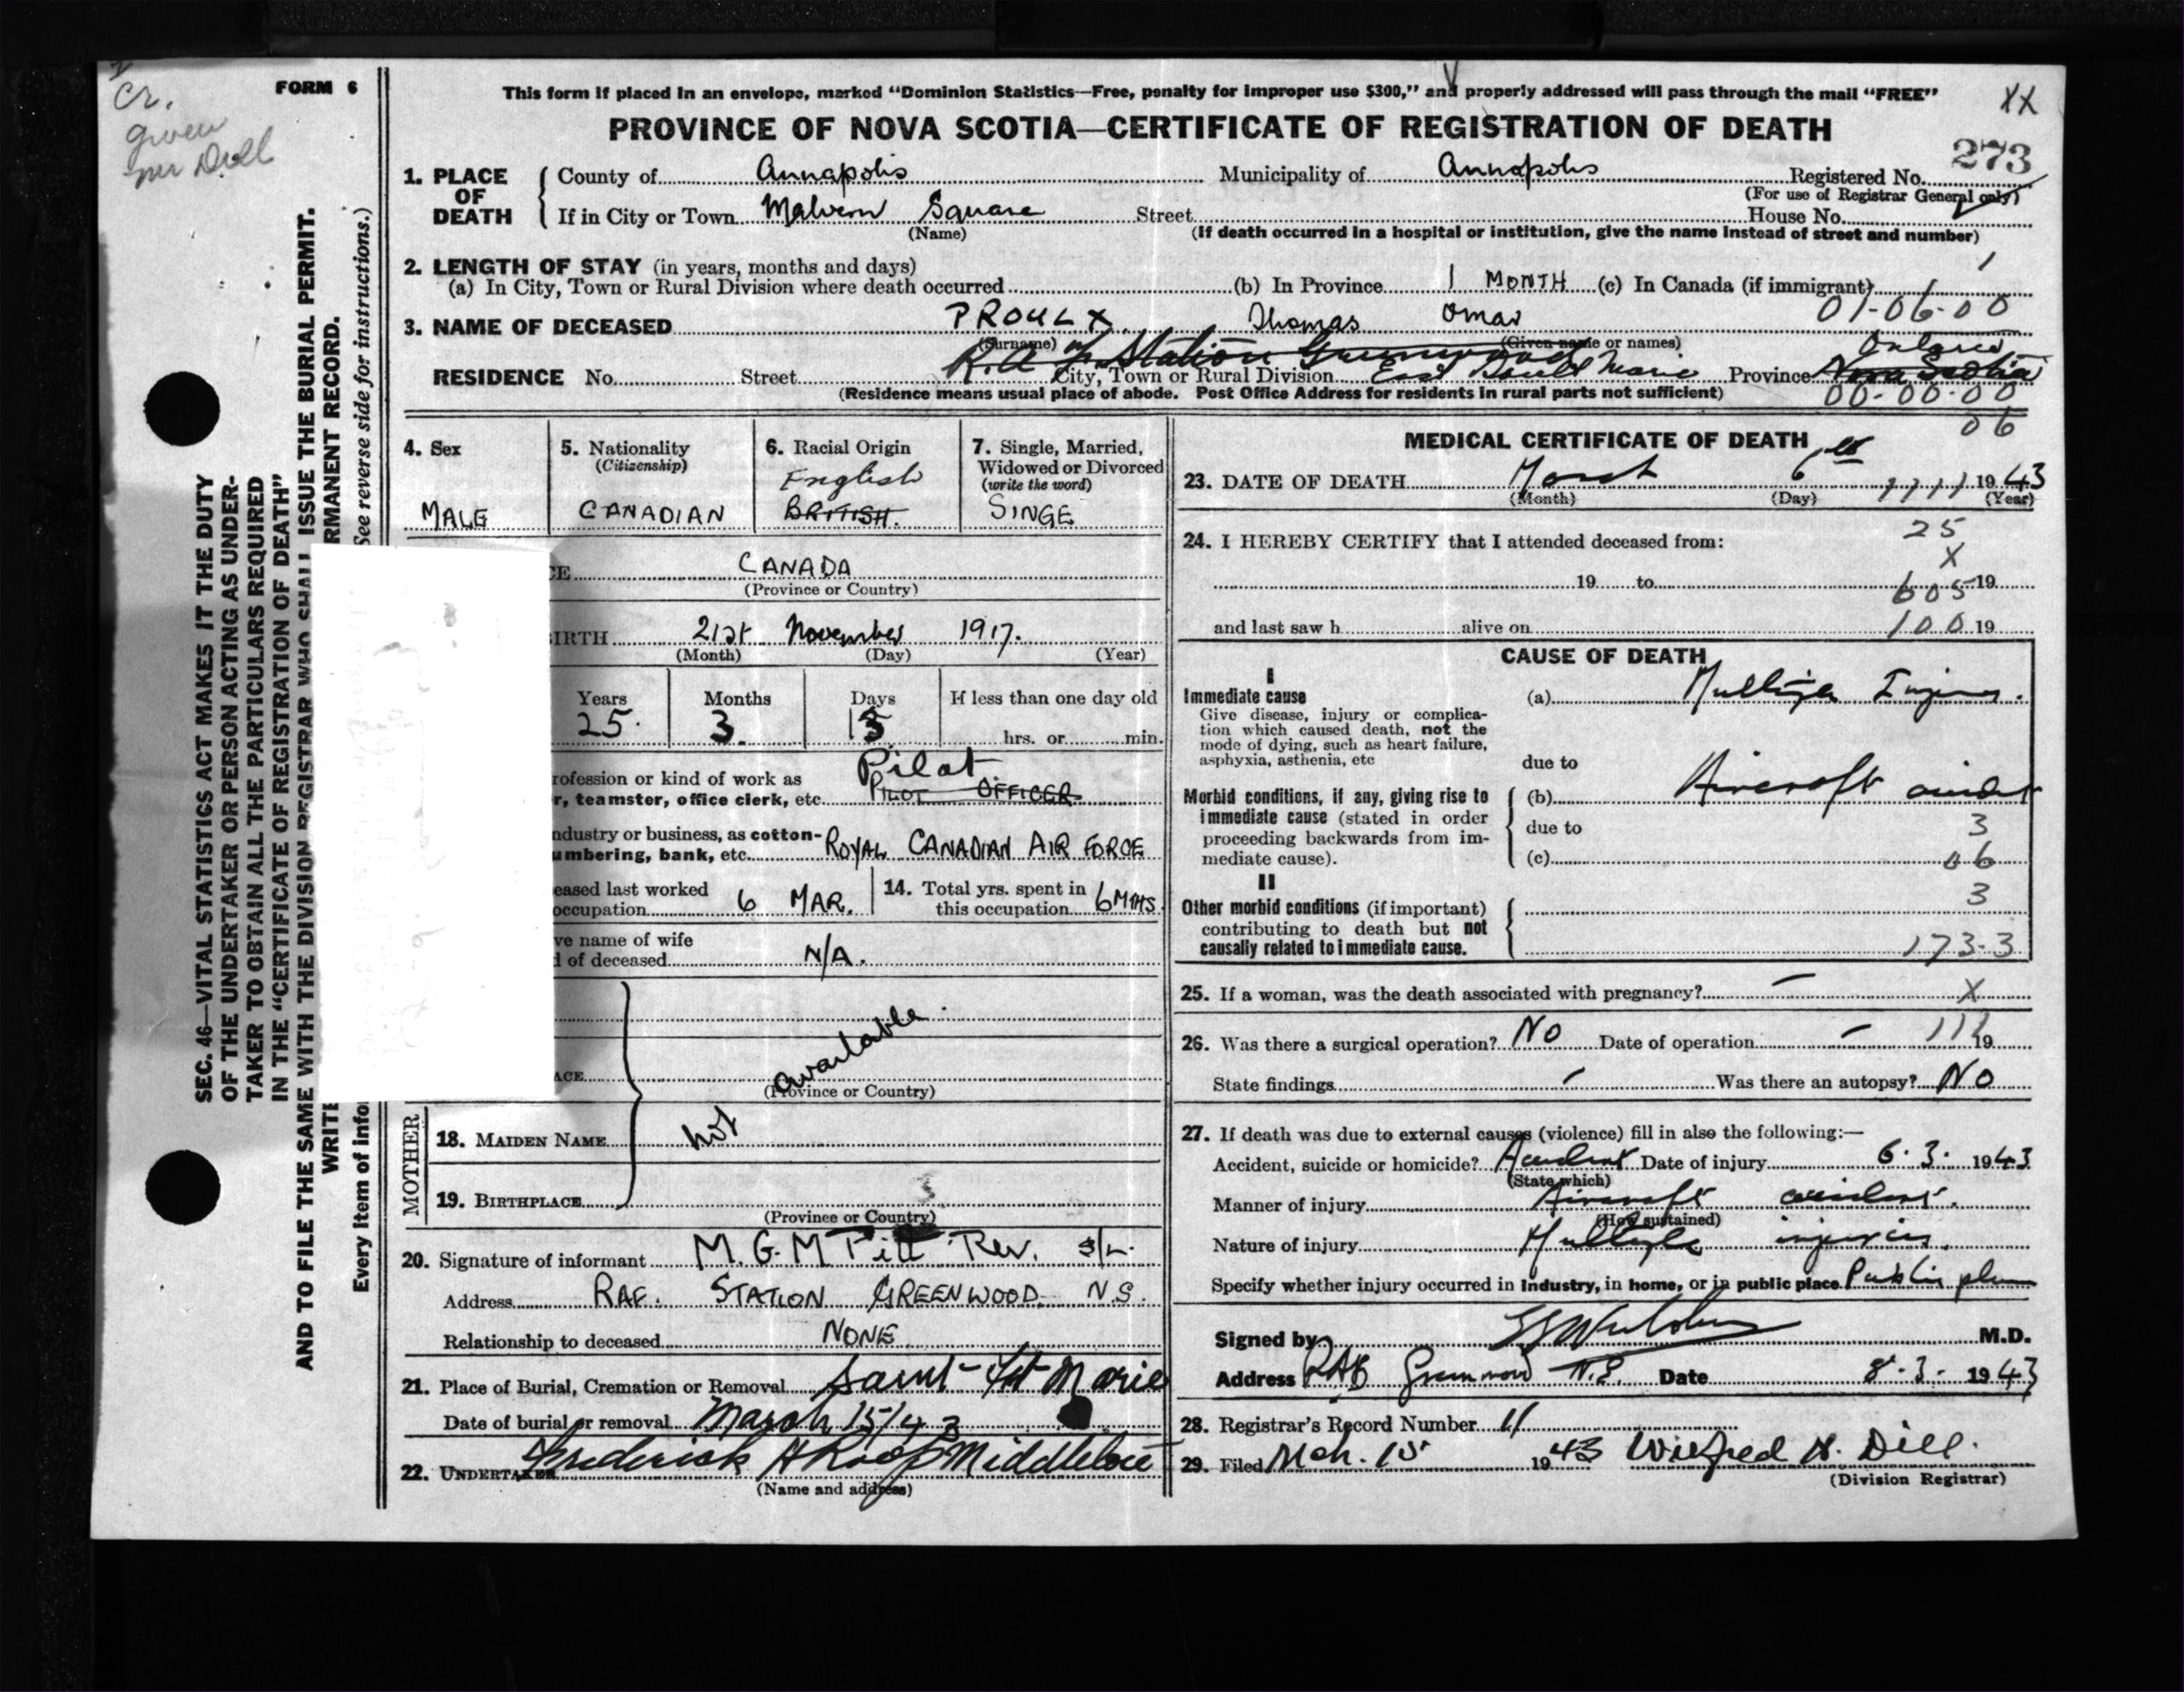 Cr.
given
mr Dill
FORM 6
SEC. 46—VITAL STATISTICS ACT MAKES IT THE DUTY
OF THE UNDERTAKER OR PERSON ACTING AS UNDER-
TAKER TO OBTAIN ALL THE PARTICULARS REQUIRED
IN THE "CERTIFICATE OF REGISTRATION OF DEATH"
AND TO FILE THE SAME WITH THE DIVISION REGISTRAR WHO SHALL ISSUE THE BURIAL PERMIT.
WRITE RMANENT RECORD.
Every item of info See reverse side for instructions.)
This form if placed in an envelope, marked "Dominion Statistics—Free, penalty for improper use $300," and properly addressed will pass through the mail "FREE"
XX
PROVINCE OF NOVA SCOTIA—CERTIFICATE OF REGISTRATION OF DEATH
273
1. PLACE OF DEATH County of Annapolis Municipality of Annapolis Registered No.
(For use of Registrar General only)
If in City or Town Malvern Square Street House No.
(Name) (If death occurred in a hospital or institution, give the name instead of street and number)
2. LENGTH OF STAY (in years, months and days)
(a) In City, Town or Rural Division where death occurred (b) In Province 1 MONTH (c) In Canada (if immigrant)
01-06-00
3. NAME OF DECEASED PROULX Thomas Omar
(Surname) (Given name or names)
R.A.F. Station Greenwood Ontario
RESIDENCE No. Street City, Town or Rural Division East Sault Marie Province Nova Scotia
(Residence means usual place of abode. Post Office Address for residents in rural parts not sufficient) 00-00-00
06
4. Sex 5. Nationality (Citizenship) 6. Racial Origin 7. Single, Married, Widowed or Divorced (write the word)
English
MALE CANADIAN BRITISH. SINGE
CE CANADA
(Province or Country)
IRTH 21st November 1917.
(Month) (Day) (Year)
Years Months Days If less than one day old
25. 3. 13 hrs. or min.
Pilot
rofession or kind of work as
r, teamster, office clerk, etc. PILOT OFFICER
ndustry or business, as cotton-
umbering, bank, etc. ROYAL CANADIAN AIR FORCE
eased last worked
occupation 6 MAR. 14. Total yrs. spent in this occupation 6 MTHS.
ve name of wife
d of deceased N/A.
ACE
(Province or Country)
not available.
MOTHER
18. MAIDEN NAME
19. BIRTHPLACE
(Province or Country)
20. Signature of informant M. G. M Pitt Rev. S/L.
Address RAF. STATION GREENWOOD N.S.
Relationship to deceased NONE
21. Place of Burial, Cremation or Removal Marie
Date of burial or removal March 15/43
22. UNDERTAKER Frederick H Roop Middleton
(Name and address)
MEDICAL CERTIFICATE OF DEATH
23. DATE OF DEATH March 6th 1943
(Month) (Day) (Year)
25
24. I HEREBY CERTIFY that I attended deceased from:
X
19 to 19
605
and last saw h alive on 19
100
CAUSE OF DEATH
I
Immediate cause (a) Multiple Injuries.
Give disease, injury or complica-
tion which caused death, not the
mode of dying, such as heart failure,
asphyxia, asthenia, etc
due to
Morbid conditions, if any, giving rise to
immediate cause (stated in order
proceeding backwards from im-
mediate cause).
(b) Aircraft accident
due to 3
(c) 06
II 3
Other morbid conditions (if important)
contributing to death but not
causally related to immediate cause.
173-3
25. If a woman, was the death associated with pregnancy? — X
26. Was there a surgical operation? No Date of operation — 19
State findings — Was there an autopsy? No
27. If death was due to external causes (violence) fill in also the following:—
Accident, suicide or homicide? Accident Date of injury 6.3. 1943
(State which)
Manner of injury Aircraft accident.
(How sustained)
Nature of injury Multiple injuries.
Specify whether injury occurred in industry, in home, or in public place Public place
Signed by M.D.
Address RAF Greenwood N.S. Date 8.3. 1943
28. Registrar's Record Number 11
29. Filed Mch. 15 1943 Wilfred H. Dill.
(Division Registrar)